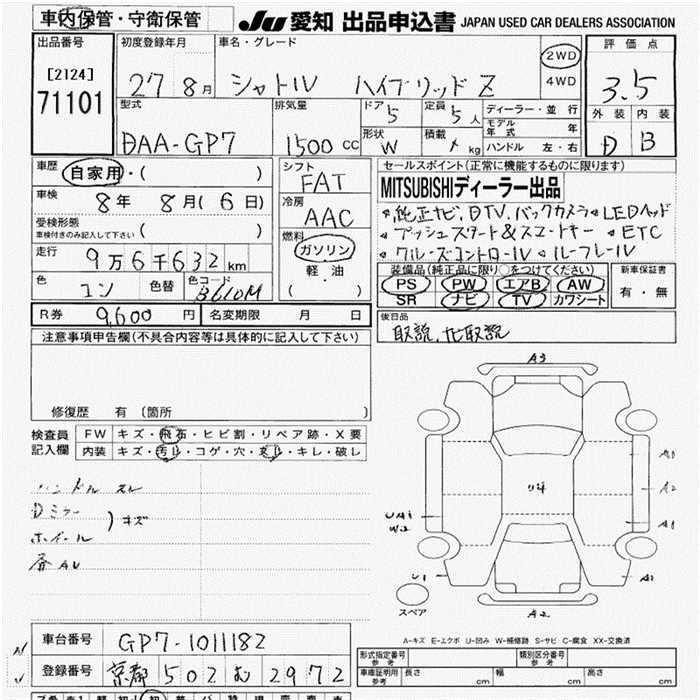 車内保管・守衛保管
JU 愛知 出品申込書 JAPAN USED CAR DEALERS ASSOCIATION
出品番号
[2124]
71101
初度登録年月
27 8月
車名・グレード
シャトル ハイブリッド Z
2WD
4WD
評価点
3.5
外装 内装
D B
型式
DAA-GP7
排気量
1500 CC
ドア
5
定員
5 人
形状
W
積載
kg
ディーラー・並行
モデル年式 年
ハンドル 左・右
車歴
自家用・( )
車検
8年 8月(6日)
受検形態
車検付きのみ記入して下さい ( )
走行
9万6千632 km
色
コン
色替
色コード
B610M
シフト
FAT
冷房
AAC
燃料
ガソリン
軽・油
( )
セールスポイント(正常に機能するものに限ります)
MITSUBISHIディーラー出品
純正ナビ、DTV、バックカメラ LEDヘッド
プッシュスタート&スマートキー ETC
クルーズコントロール ルーフレール
装備品(純正品に限り○をつけてください)
PS PW エアB AW
SR ナビ TV カワシート
新車保証書
有・無
R券 9,600 円
名変期限 月 日
後日品
取説、ナビ取説
注意事項申告欄(不具合内容等は具体的に記入して下さい)
修復歴 有 〔箇所 〕
検査員
記入欄
FW キズ・飛石・ヒビ割・リペア跡・X要
内装 キズ・汚れ・コゲ・穴・変し・キレ・破レ
ハンドル スレ
Dミラー
ホイール
キズ
A3
U4
A2
A1
U1
A1
A2
スペア
A-キズ E-エクボ U-凹み W-補修跡 S-サビ C-腐食 XX-交換済
車台番号 GP7-1011182
登録番号 京都 502 む 2972
形式指定番号
参考
類別区分番号
参考
車庫証明用
参考
長さ cm
幅 cm
高さ cm